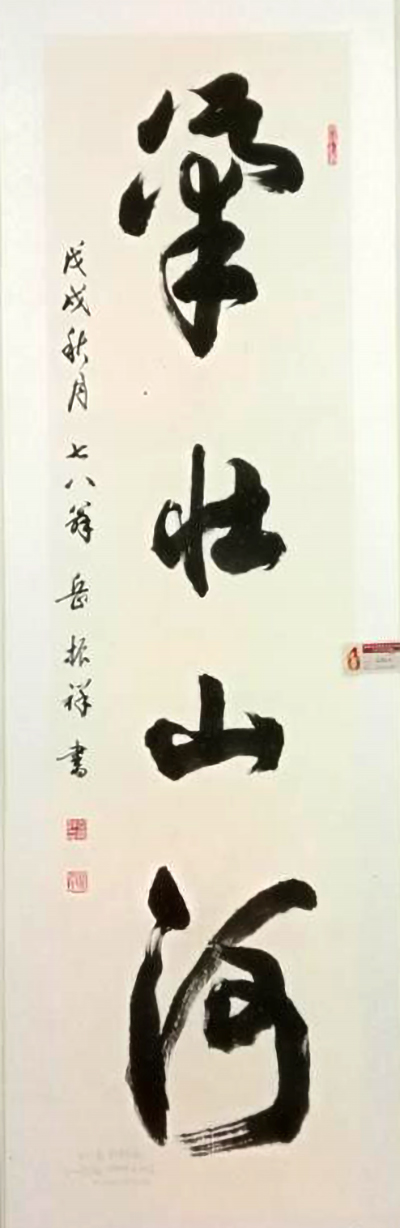 氣壮山河
戊戌秋月七八翁岳振祥書